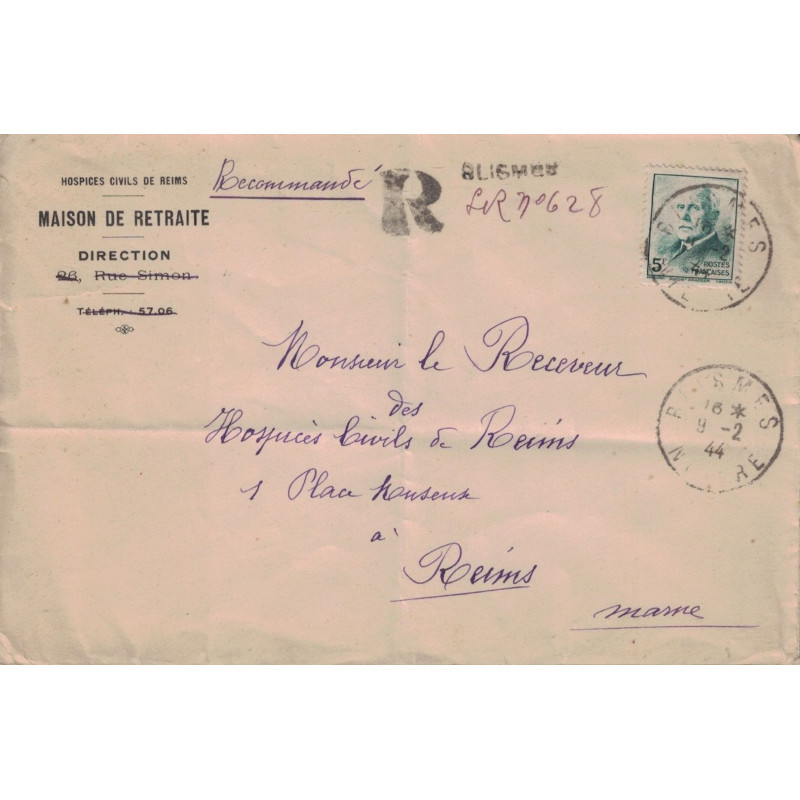 HOSPICES CIVILS DE REIMS
MAISON DE RETRAITE
DIRECTION
26, Rue Simon
TÉLÉPH. : 57.06
Recommandé
R
BLIGNY
LR nº 628
5F
POSTES
FRANÇAISES
Monsieur le Receveur
des
Hospices Civils de Reims
1 Place Museux
à
Reims
Marne
16 *
9 -2
44